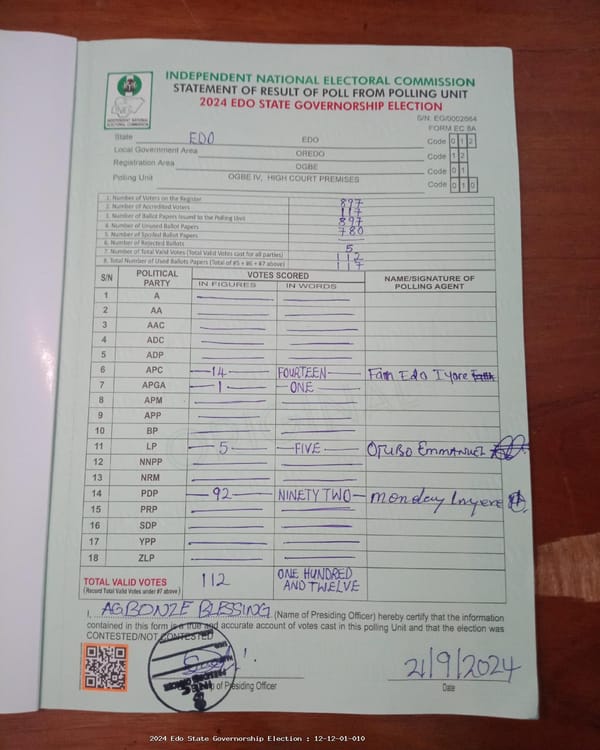 INDEPENDENT NATIONAL ELECTORAL COMMISSION
STATEMENT OF RESULT OF POLL FROM POLLING UNIT
2024 EDO STATE GOVERNORSHIP ELECTION
INDEPENDENT NATIONAL ELECTORAL COMMISSION
S/N: EG/0002664
FORM EC 8A
State EDO EDO Code 0 1 2
Local Government Area OREDO Code 1 2
Registration Area OGBE Code 0 1
Polling Unit OGBE IV, HIGH COURT PREMISES Code 0 1 0
1. Number of Voters on the Register 897
2. Number of Accredited Voters 117
3. Number of Ballot Papers Issued to the Polling Unit 897
4. Number of Unused Ballot Papers 780
5. Number of Spoiled Ballot Papers
6. Number of Rejected Ballots 5
7. Number of Total Valid Votes (Total Valid Votes cast for all parties) 112
8. Total Number of Used Ballots Papers (Total of #5 + #6 + #7 above) 117
S/N POLITICAL PARTY VOTES SCORED NAME/SIGNATURE OF POLLING AGENT
IN FIGURES IN WORDS
1 A
2 AA
3 AAC
4 ADC
5 ADP
6 APC 14 FOURTEEN Faith Edo Iyore
7 APGA 1 ONE
8 APM
9 APP
10 BP
11 LP 5 FIVE Otubo Emmanuel
12 NNPP
13 NRM
14 PDP 92 NINETY TWO Monday
15 PRP
16 SDP
17 YPP
18 ZLP
TOTAL VALID VOTES 112 ONE HUNDRED AND TWELVE
(Record Total Valid Votes under #7 above)
I, AGBONZE BLESSING (Name of Presiding Officer) hereby certify that the information
contained in this form is a true and accurate account of votes cast in this polling Unit and that the election was
CONTESTED/NOT CONTESTED
of Presiding Officer
21/9/2024
Date
2024 Edo State Governorship Election : 12-12-01-010